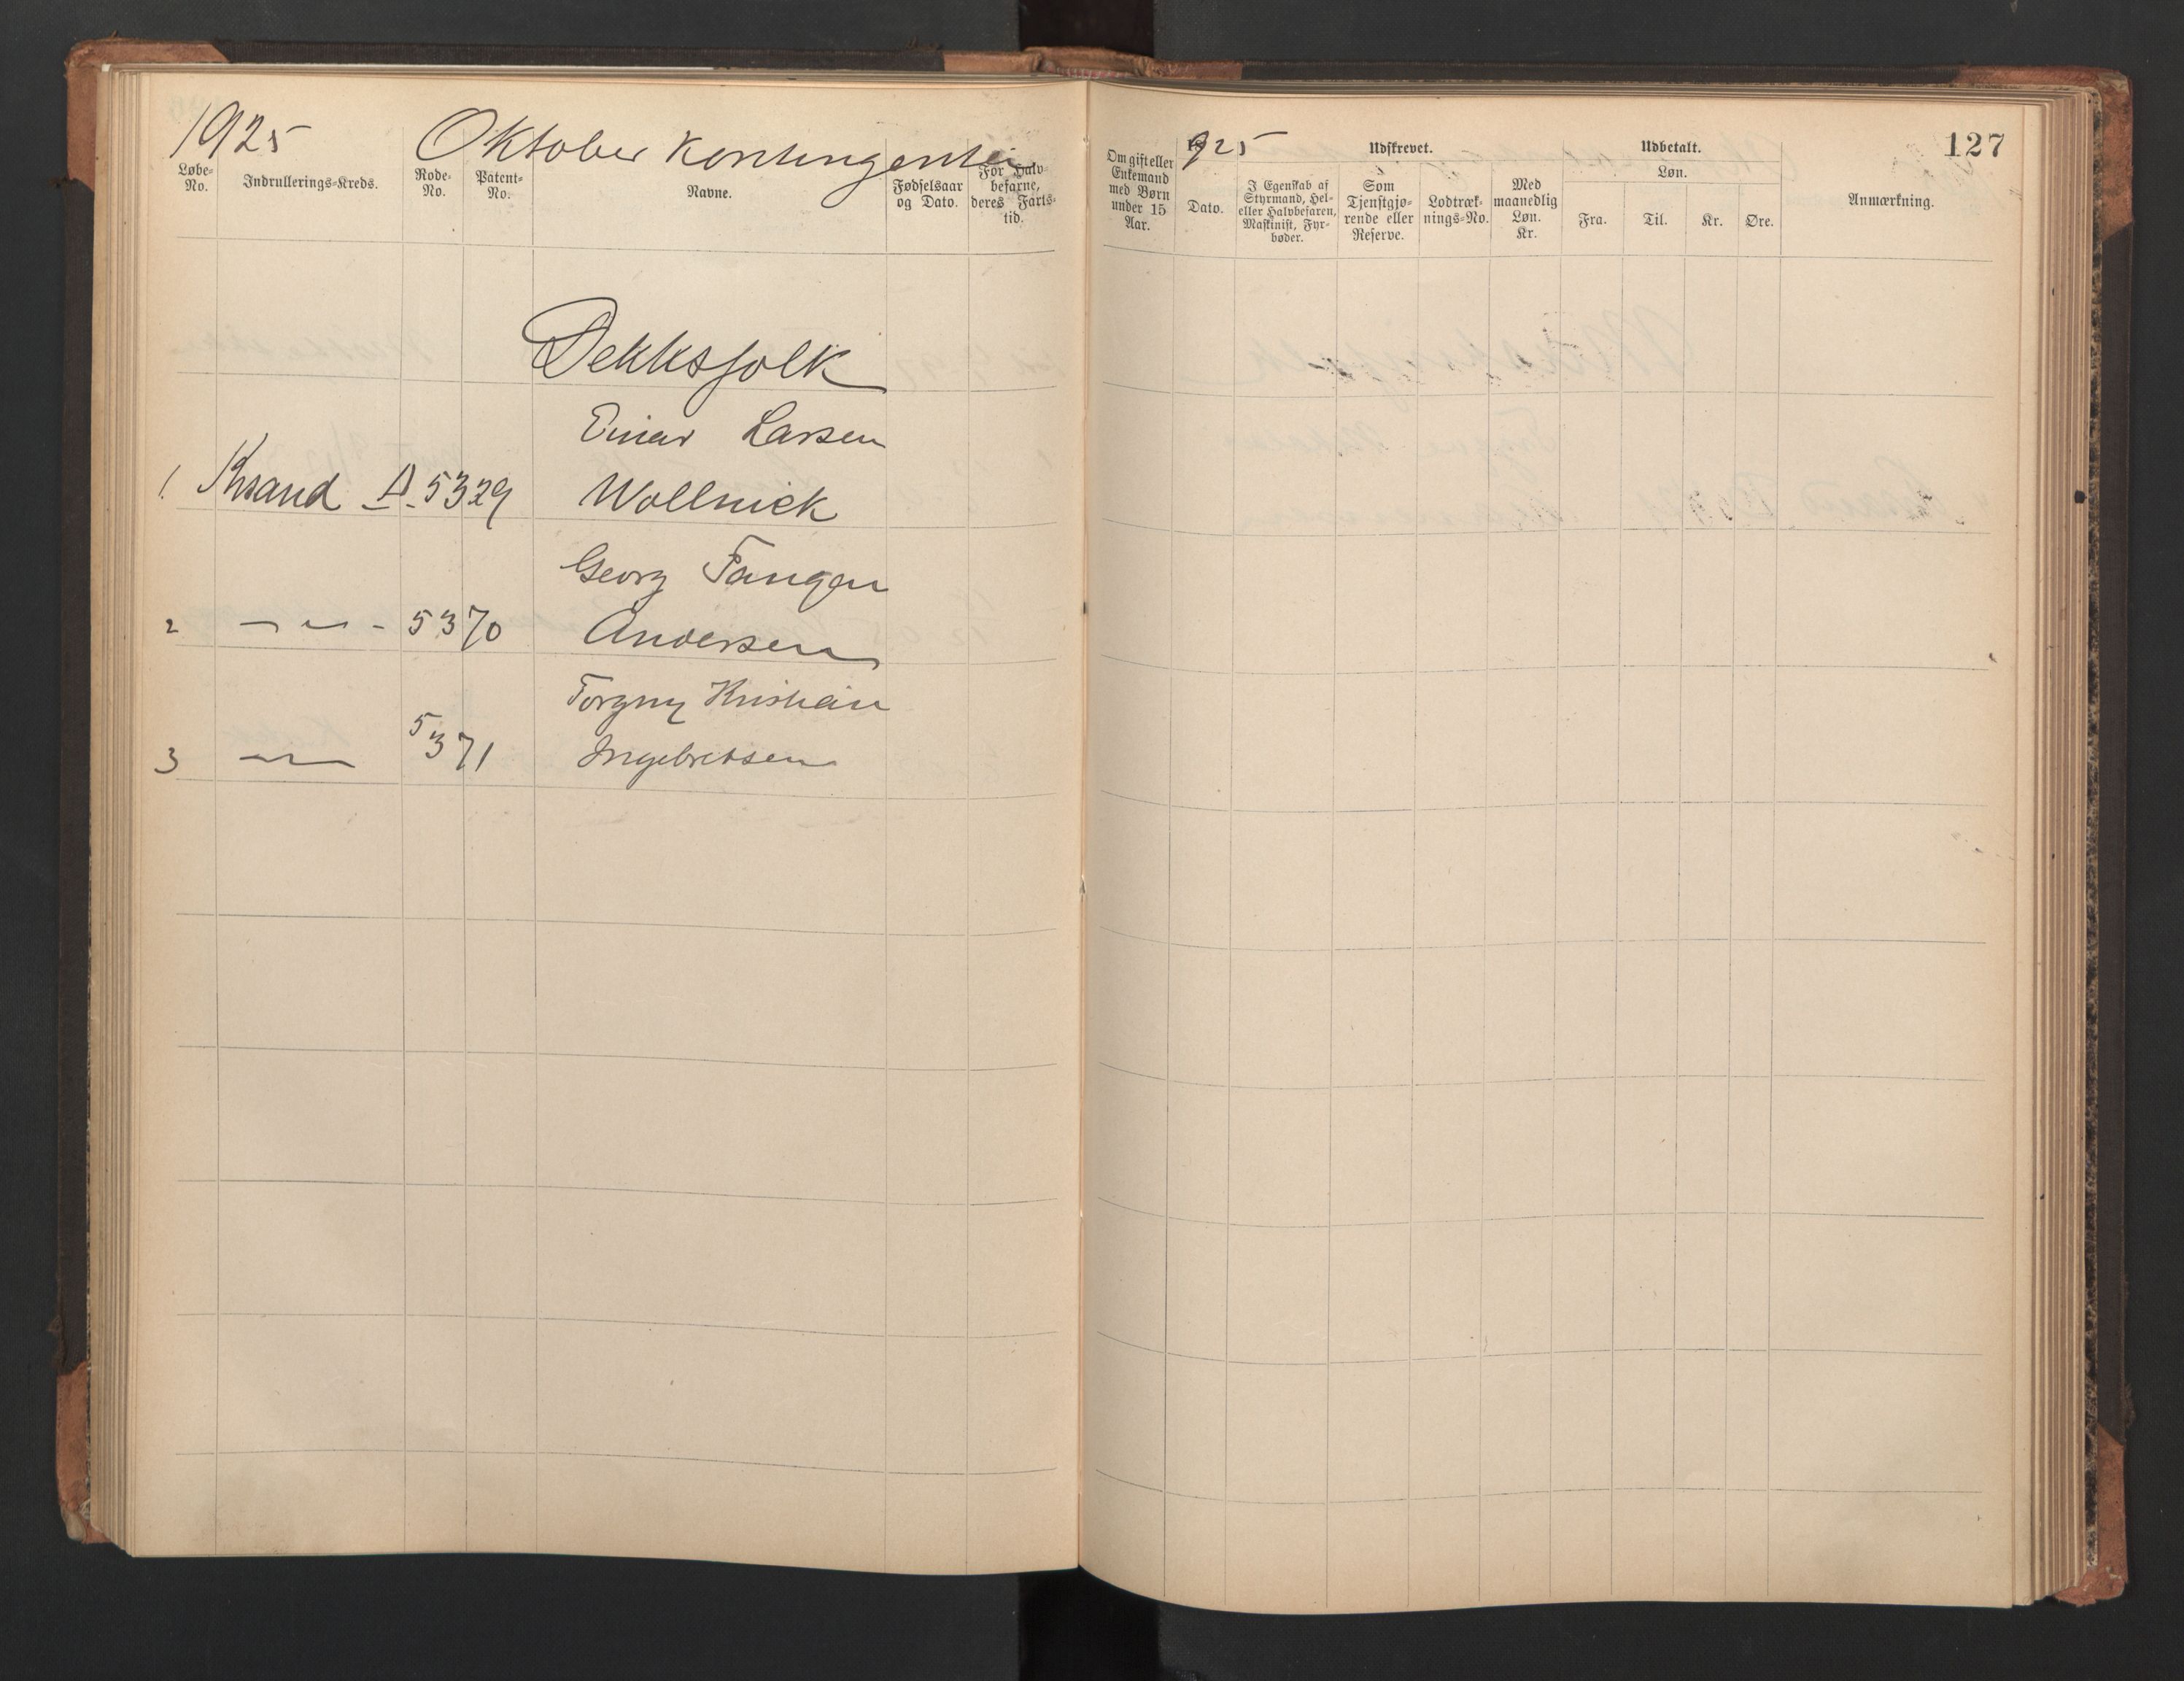 1925 Oktober Kontingenter
Løbe-No.
Indrullerings-Kreds.
Rode-No.
Patent-No.
Navne.
Fødselsaar og Dato.
For Halvbefarne, deres Fartstid.
Dekksfolk
Einar Larsen
1. Krsand A. 5329 Wollnick
Georg Fangen
2 — " — 5370 Andersen
Torgny Kristian
3 — " — 5371 Ingebretsen
127
Om gift eller Enkemand med Børn under 15 Aar.
925
Dato.
Udskrevet.
I Egenskab af Styrmand, Hel- eller Halvbefaren, Maskinist, Fyrbøder.
Som Tjenstgjørende eller Reserve.
Lodtræknings-No.
Med maanedlig Løn. Kr.
Udbetalt.
Løn.
Fra.
Til.
Kr.
Øre.
Anmærkning.